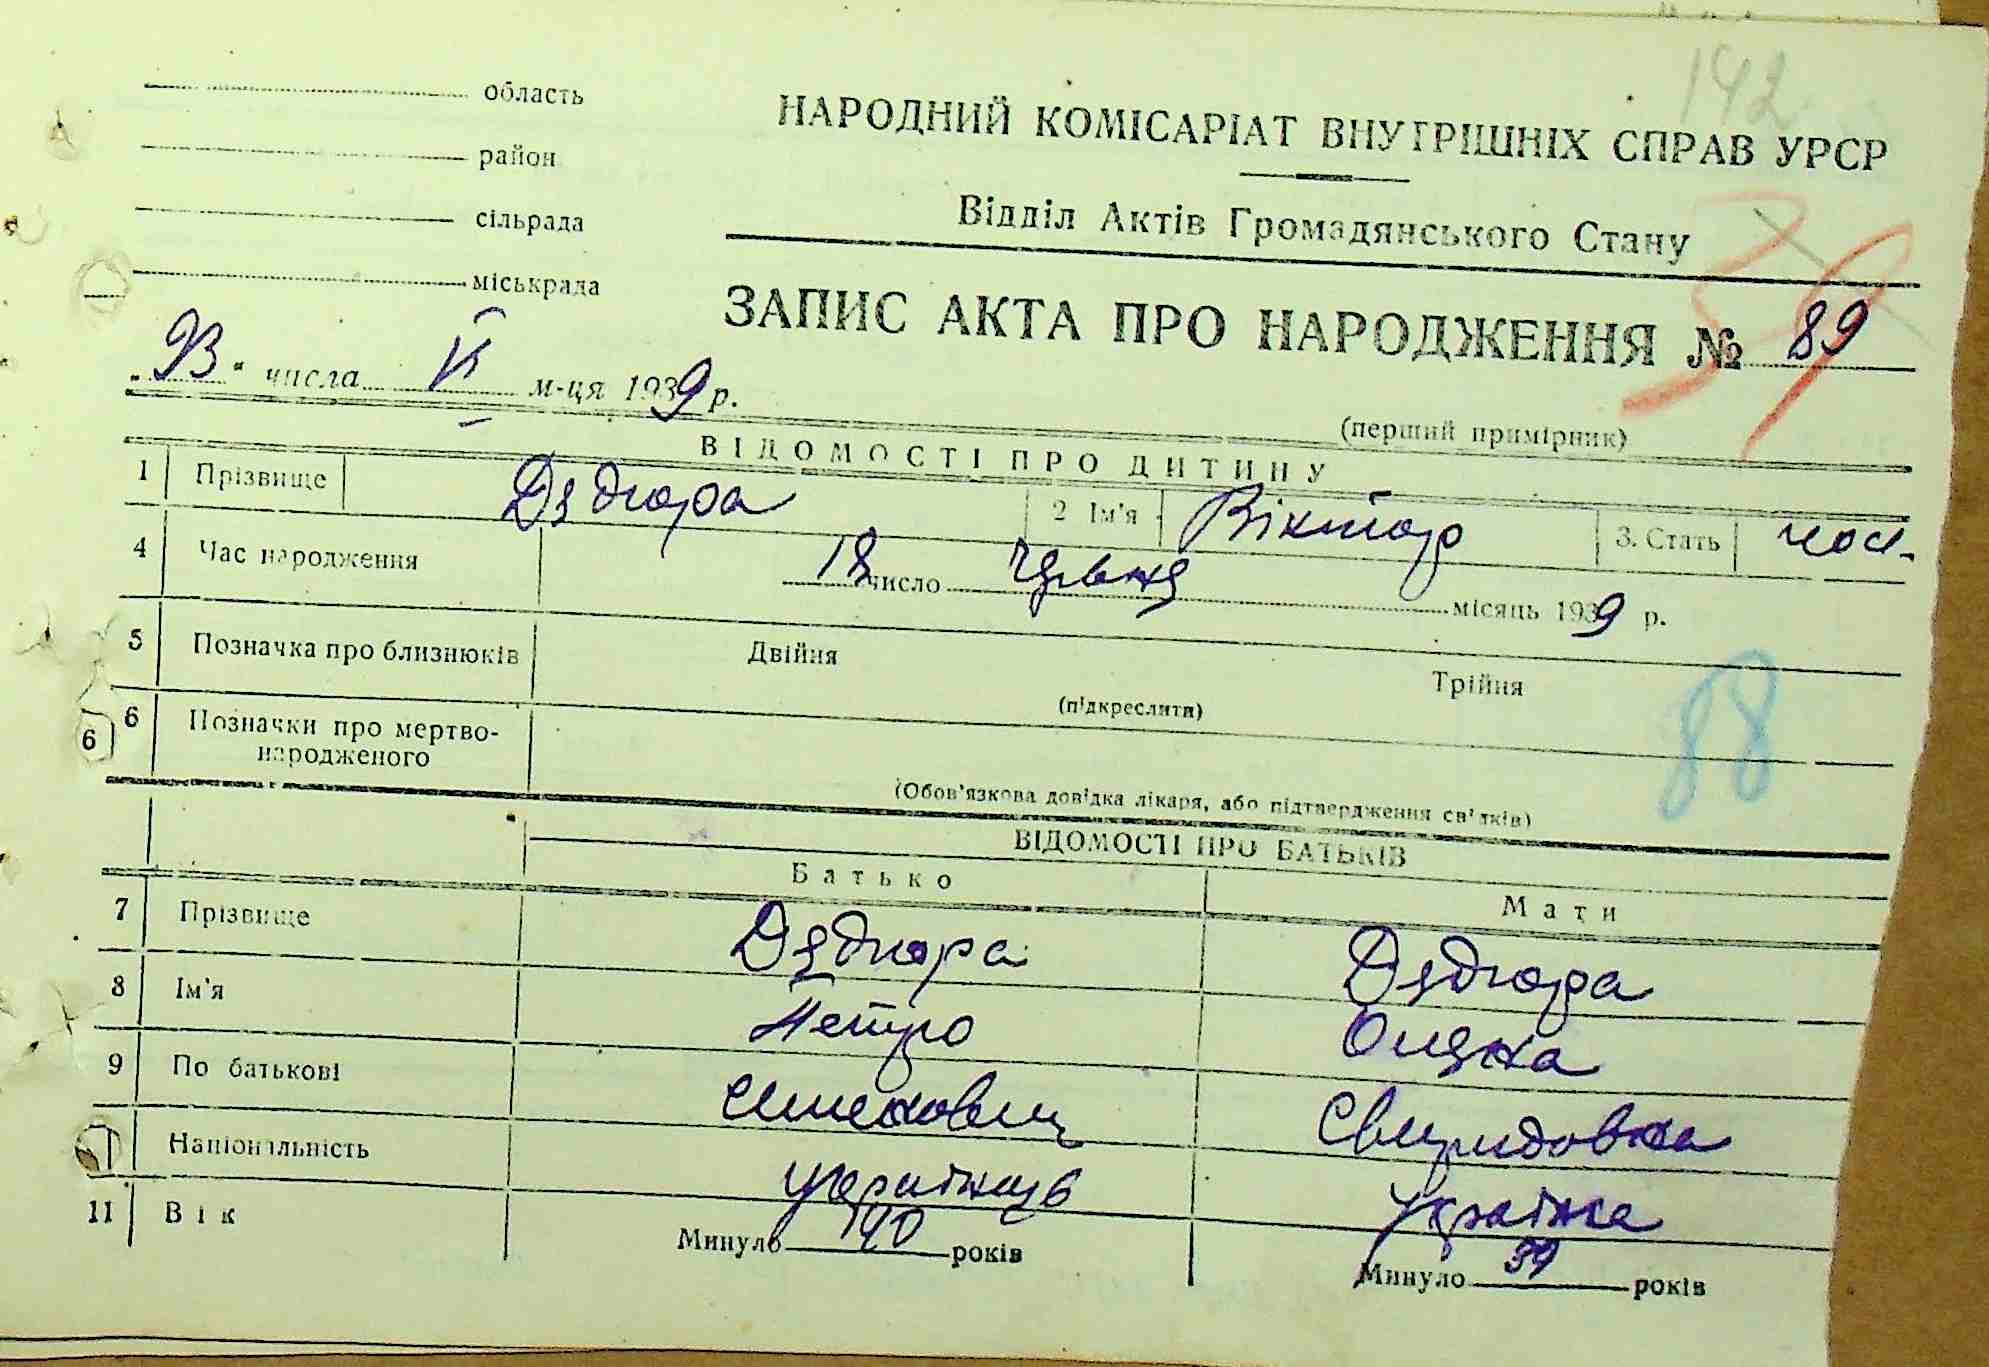 142
область
район
сільрада
міськрада
НАРОДНИЙ КОМІСАРІАТ ВНУТРІШНІХ СПРАВ УРСР
Відділ Актів Громадянського Стану
39
ЗАПИС АКТА ПРО НАРОДЖЕННЯ № 89
"23" числа VI м-ця 1939 р.
(перший примірник)
ВІДОМОСТІ ПРО ДИТИНУ
1 Прізвище Дзюдюра 2 Ім'я Віктор 3. Стать чол.
4 Час народження 18 число червня місяць 1939 р.
5 Позначка про близнюків Двійня Трійня
(підкреслити)
88
6 Позначки про мертвонародженого
6
(Обов'язкова довідка лікаря, або підтвердження свідків)
ВІДОМОСТІ ПРО БАТЬКІВ
Батько Мати
7 Прізвище
8 Ім'я Петро
9 По батькові Свиридовна
Національність українець українка
11 Вік Минуло 40 років Минуло 39 років